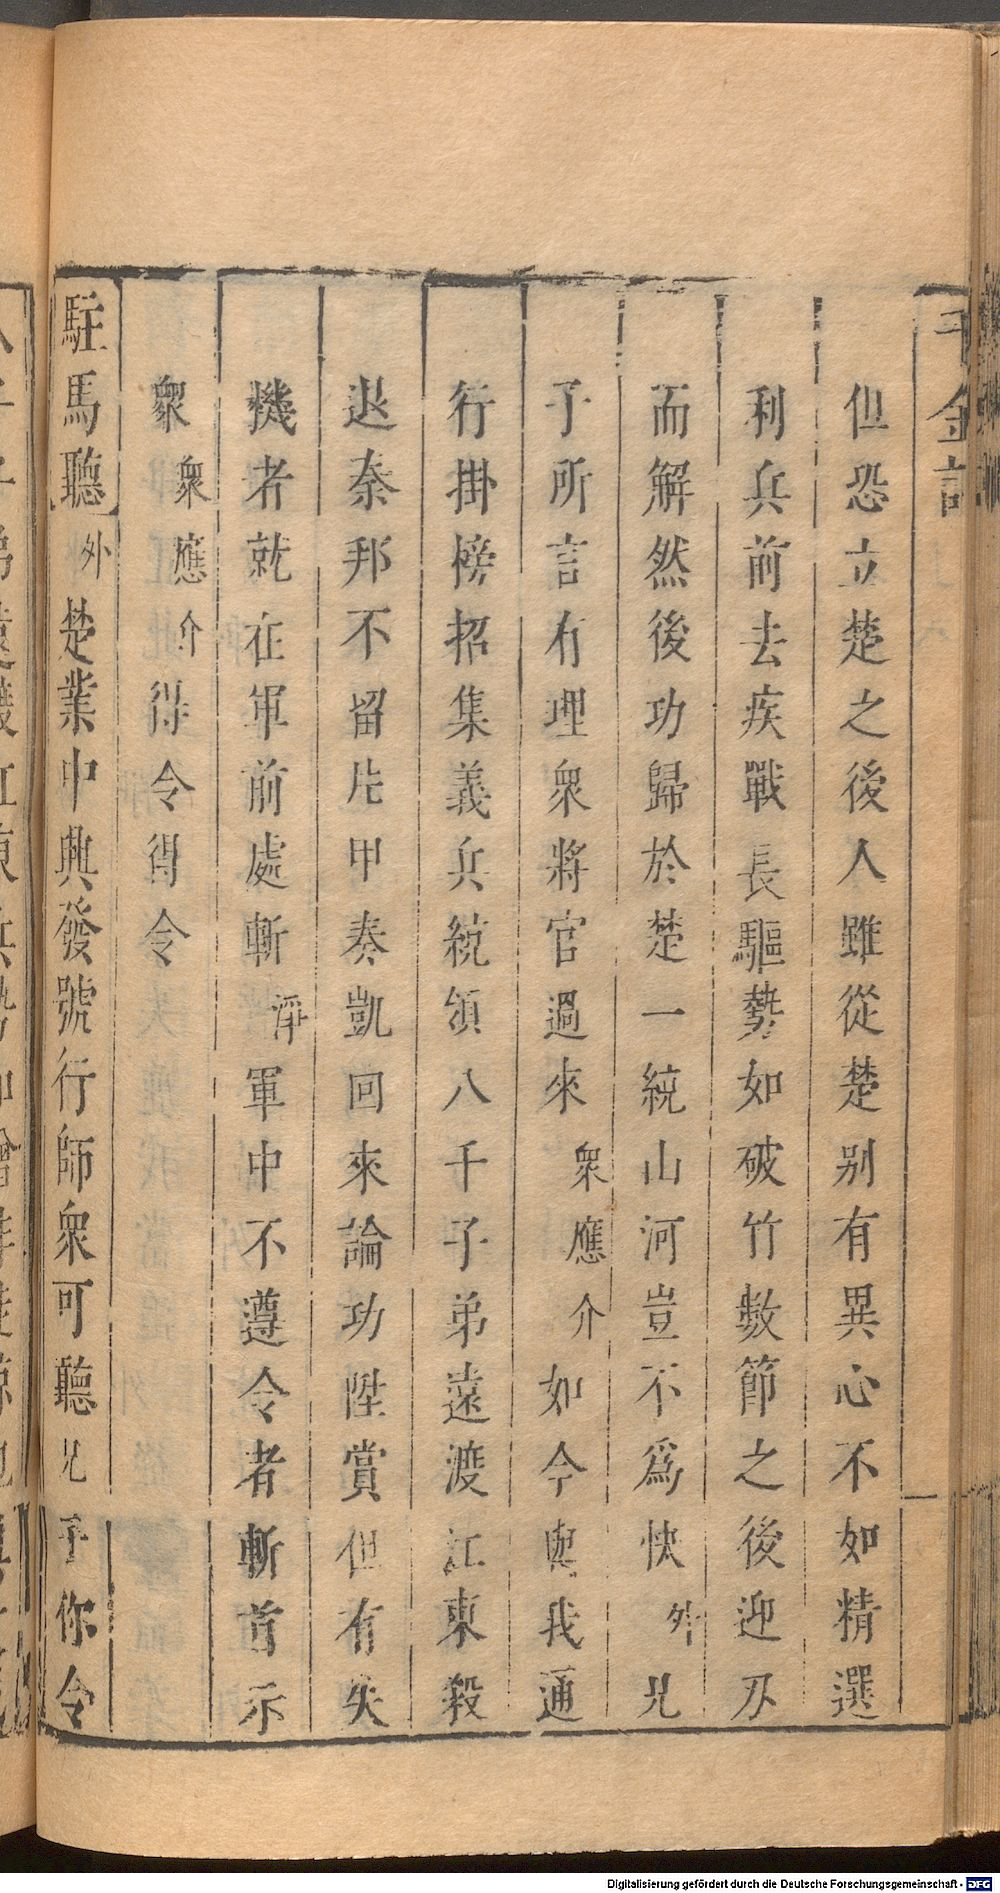 千金記
但恐立楚之後人雖從楚别有異心不如精選
利兵前去疾戰長驅勢如破竹數節之後迎刃
而解然後功歸於楚一統山河豈不爲快外兄
子所言有理衆將官過來衆應介如今與我通
行掛榜招集義兵統領八千子弟遠渡江東殺
退秦邦不留片甲奏凱回來論功陞賞但有失
機者就在軍前處斬淨軍中不遵令者斬首示
衆衆應介得令得令
駐馬聽外楚業中興發號行師衆可聽兄子你令
Digitalisierung gefördert durch die Deutsche Forschungsgemeinschaft - DFG